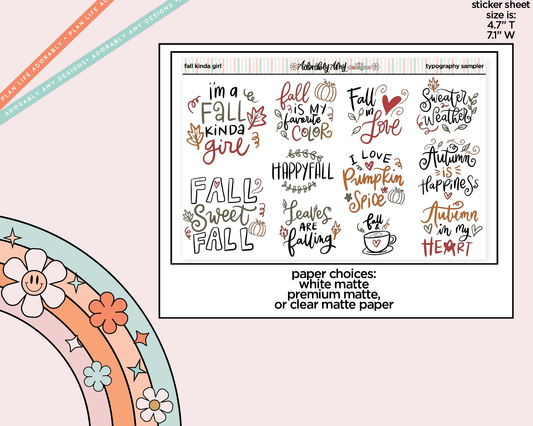 PLAN LIFE ADORABLY • PLAN LIFE ADORABLY •
ADORABLY AMY DESIGNS • ADORABLY AMY DESIGNS •
sticker sheet
size is:
4.7" T
7.1" W
fall kinda girl
Adorably Amy
designs
typography sampler
i'm a
FALL
KINDA
girl
fall
IS MY
favorite
COLOR
Fall
in
Love
Sweater
Weather
HAPPYFALL
I LOVE
Pumpkin
Spice
Autumn
IS
HAPPINESS
FALL
Sweet
FALL
Leaves
ARE
falling
fall
&
Autumn
in my
HEART
paper choices:
white matte
premium matte,
or clear matte paper